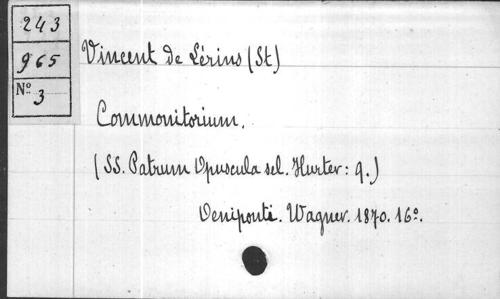 243
965
Nº 3
Vincent de Lérins (St)
Commonitorium.
(SS. Patrum Opuscula sel. Hurter: 9.)
Oeniponti. Wagner. 1870. 16º.